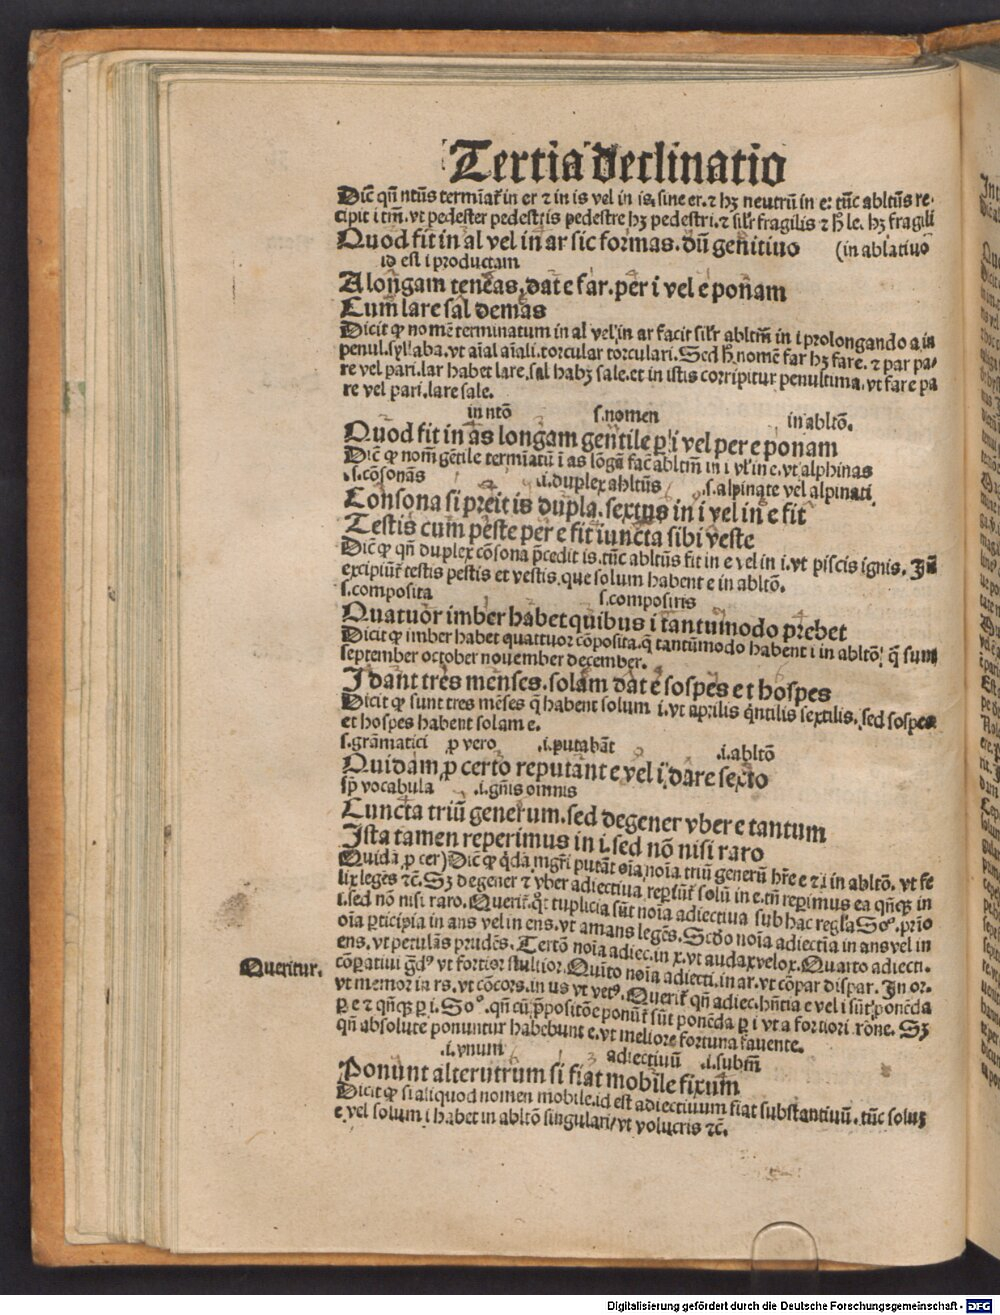 Tertia declinatio
Dic̄ qn̄ ntūs termīať in er ⁊ in is vel in is, sine er. ⁊ hꝫ neutrū in e: tūc abltūs re⸗
cipit i tm̄. vt pedester pedestris pedestre hꝫ pedestri. ⁊ sil'r fragilis ⁊ h̄ le. hꝫ fragili
Quod fit in al vel in ar sic formas. dū genitiuo (in ablatiuo
id est i productam
A longam teneas, dat e far. per i vel e ponam
Cum lare sal demas
Dicit ꝙ nomē terminatum in al vel in ar facit sil'r abltm̄ in i prolongando a in
penul. syllaba. vt aīal aīali. torcular torculari. Sed h̄ nomē far hꝫ fare. ⁊ par pa⸗
re vel pari. lar habet lare, sal habꝫ sale. et in istis corripitur penultima, vt fare pa
re vel pari. lare sale.
in ntō s. nomen in abltō.
Quod fit in as longam gentile ꝑ i vel per e ponam
Dic̄ ꝙ nom̄ gētile termīatū i as lōgū fac̄ abltm̄ in i vl' in e. vt alphinas
.s. cōsonās .i. duplex abltūs .s. alpinate vel alpinati
Consona si preit is dupla. sextus in i vel in e fit
Testis cum peste per e fit iuncta sibi veste
Dic̄ ꝙ qn̄ duplex cōsona p̄cedit is. tūc abltūs fit in e vel in i. vt piscis ignis. In̄
excipiūť testis pestis et vestis. que solum habent e in abltō.
s. composita s. compositis
Quatuor imber habet quibus i tantummodo prebet
Dicit ꝙ imber habet quattuor cōposita. q̄ tantūmodo habent i in abltō. q̄ sunt
september october nouember december.
I dant tres menses. solam dat e sospes et hospes
Dicit ꝙ sunt tres mēses q̄ habent solum i. vt aprilis q̇ntilis sextilis. sed sospes
et hospes habent solam e.
s. grāmatici ꝓ vero .i. putabāt .i. abltō
Quidam ꝓ certo reputant e vel i dare sexto
sp̄ vocabula .i. gn̄is omnis
Cuncta triū generum. sed degener vber e tantum
Ista tamen reperimus in i. sed nō nisi raro
Quidā ꝓ cer) Dic̄ ꝙ q̇dā mgr̄i putāt oīa noīa triū generū hr̄e e ⁊ i in abltō. vt fe
lix leges ⁊c̄. Sꝫ degener ⁊ vber adiectiua reperiūť solū in e. tn̄ reperimus ea qn̄qꝫ in
i. sed nō nisi raro. Queriť. q̇t tuplicia sūt noīa adiectiua sub hac regl'a Soꝰ. prīo
oīa ꝑticipia in ans vel in ens. vt amans legēs. Scd̄o noīa adiectīa in ans vel in
ens. vt petulās prudēs. Tertō noīa adiec. in x. vt audax velox. Quarto adiecti.
Queritur. cōꝑatiui g̈dꝰ vt fortior stultior. Quīto noīa adiecti. in ar. vt cōpar dispar. In or.
vt memor in rs. vt cōcors. in us vt vetꝰ. Queriť qn̄ adiec. hn̄tia e vel i sūt ponēda
ꝑ e ⁊ qn̄qꝫ ꝑ i. Soꝰ. qn̄ cū p̄positōe ponūť sūt ponēda ꝑ i vt a fortiori rōne. Sꝫ
qn̄ absolute ponuntur habebunt e. vt meliore fortuna fauente.
.i. vnum adiectiuū .i. subm̄
Ponunt alterutrum si fiat mobile fixum
Dicit ꝙ si aliquod nomen mobile. id est adiectiuum fiat substantiuū. tūc soluꝫ
e vel solum i habet in abltō singulari/vt volucris ⁊c̄.
Digitalisierung gefördert durch die Deutsche Forschungsgemeinschaft - DFG